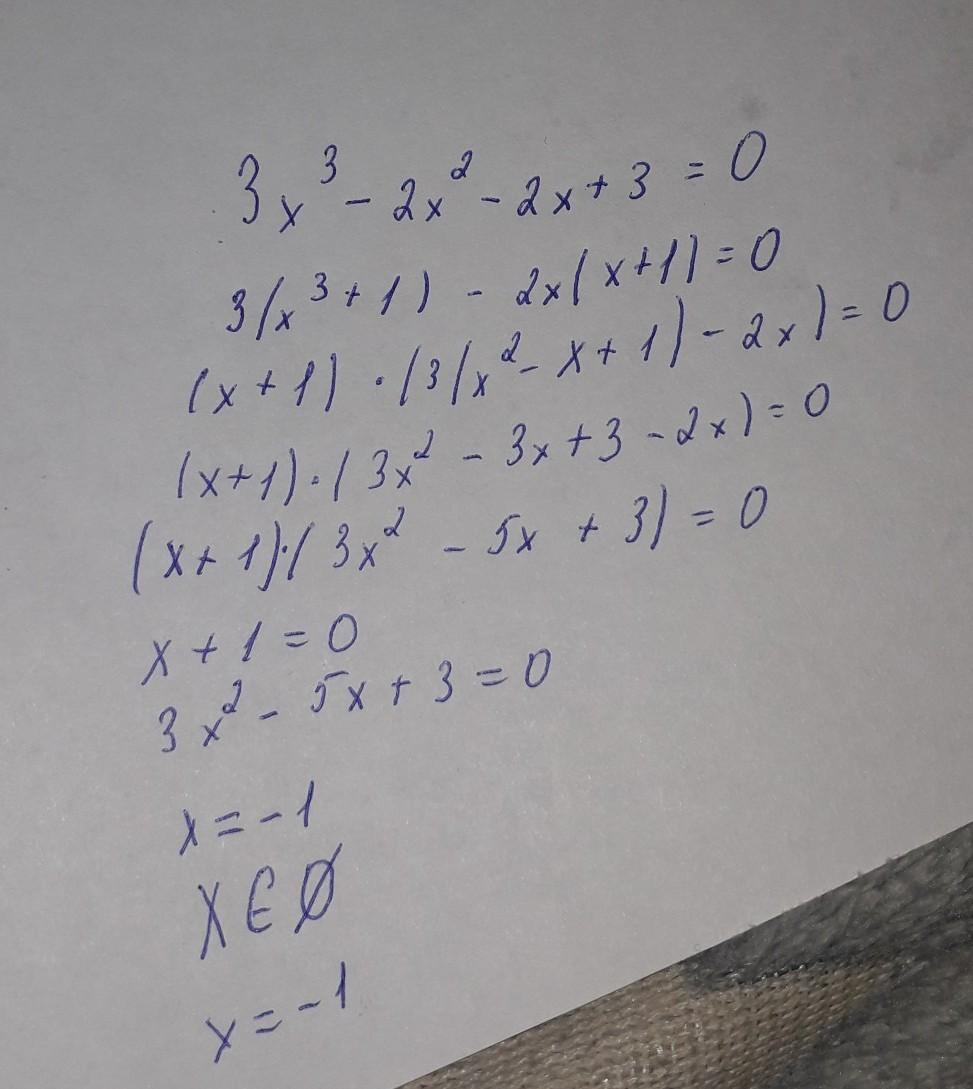 3x³ - 2x² - 2x + 3 = 0
3(x³ + 1) - 2x(x+1) = 0
(x + 1) · (3(x² - x + 1) - 2x) = 0
(x+1) · (3x² - 3x + 3 - 2x) = 0
(x + 1) · (3x² - 5x + 3) = 0
x + 1 = 0
3x² - 5x + 3 = 0
x = -1
X ∈ Ø
x = -1